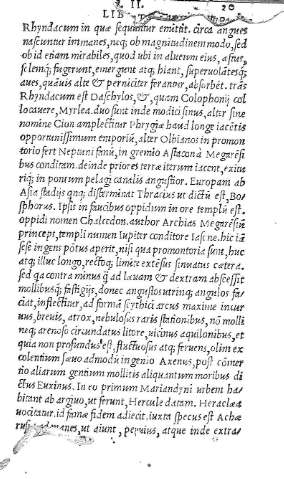 LIB II. 20
Rhyndacum in quæ sequuntur emittit. circa angues
nascuntur immanes, neq; ob magnitudinem modo, sed
ob id etiam mirabiles, quod ubi in alueum eius, æstus,
solemq; fugerunt, emergunt atq; hiant, superuolātesq;
aues, quāuis alte & perniciter ferantur, absorbēt. trās
Rhyndacum est Daschylos, &, quam Colophonij col
locauere, Myrlea. duo sunt inde modici sinus, alter sine
nomine Cion amplectitur Phrygiæ haud longe iacētis
opportunissimum emporiū, alter Olbianos in promon
torio fert Neptuni fanū, in gremio Astacon à Megarēsi
bus conditam. deinde priores terræ iterum iacent, exitu
riq; in pontum pelagi canalis angustior. Europam ab
Asia stadijs quinq; disterminat Thracius ut dictū est, Bo
sphorus. Ipsis in faucibus oppidum in ore templū est.
oppidi nomen Chalcedon. author Archias Megarēsiū
princeps, templi numen Iupiter conditore Iasone. hic iā
sese ingens pōtus aperit, nisi qua promontoria sunt, huc
atq; illuc longo, rectoq; limite extēsus sinuatus cætera.
sed qa contra minus q̄ ad læuam & dextram abscessit
mollibusq; fastigijs, donec angustos utrinq; angulos fa
ciat, inflectitur, ad formā scythici arcus maxime incur
uus, breuis, atrox, nebulosus raris stationibus, nō molli
neq; arenoso circundatus litore, uicinus aquilonibus, et
quia non profundus est, fluctuosus atq; feruens, olim ex
colentium sæuo admodū ingenio Axenus, post cōmer
cio aliarum gentium mollitis aliquantum moribus di
ctus Euxinus. In eo primum Mariandyni urbem ha-
bitant ab argiuo, ut ferunt, Hercule datam. Heraclea
uocitatur. id famæ fidem adiecit. iuxta specus est Ache
rusia ad manes, ut aiunt, peruius, atque inde extra-